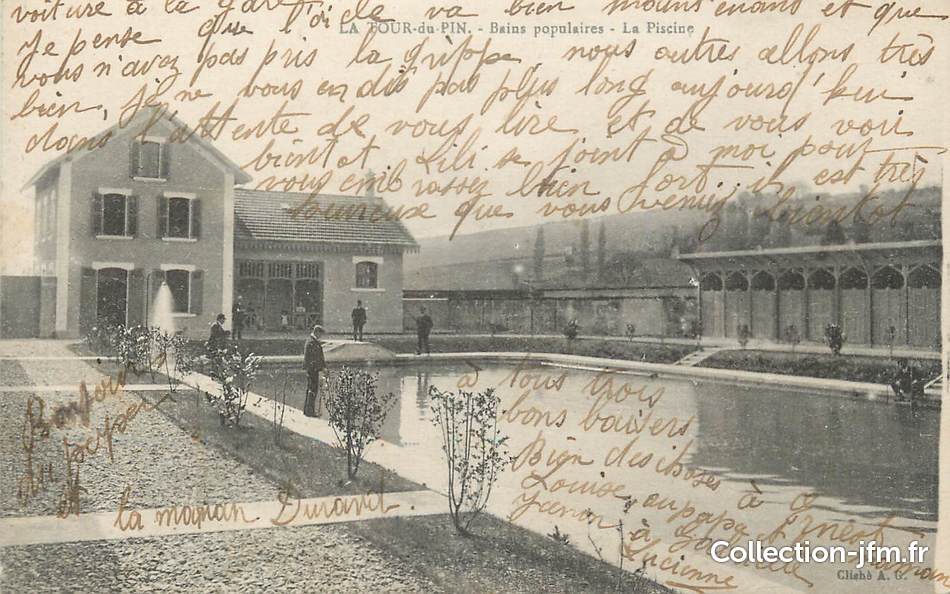 voiture à la gare l'oiela va bien maintenant et que
LA TOUR-du-PIN. - Bains populaires - La Piscine
Je pense que
vous n'avez pas pris la grippe, nous autres allons très
bien, Je ne vous en dis pas plus long aujourd'hui
dans l'attente de vous lire et de vous voir
bientot Lili se joint à moi pour
vous embrasser bien fort, il est très
que vous veniez bientot
à tous trois
bons baisers
Bien des choses
à Ernest
Louise, aupapa
Janon à
Lucienne
Bonjour
du peper
et la magnan Durand.
Collection-jfm.fr
Cliché A. G.